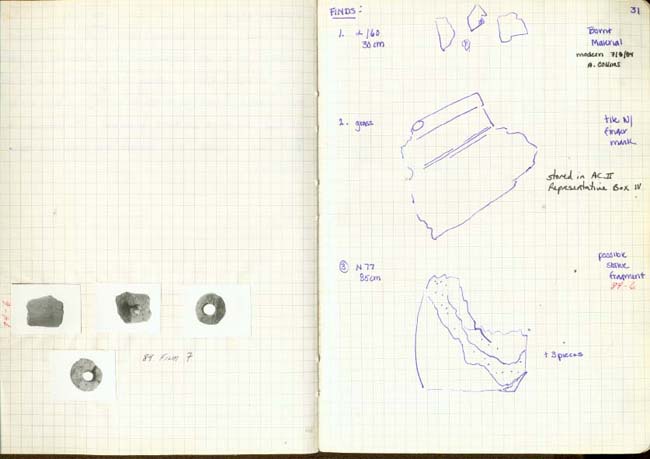 84-6
84 Film 7
31
FINDS:
1. 2/60
30cm
?
Burnt
Material
modern 7/8/84
A. COLLINS
2. grass
tile w/
finger
mark
stored in AC II
Representative Box IV
3 N77
35cm
possible
stone
fragment
84-6
+ 3 pieces